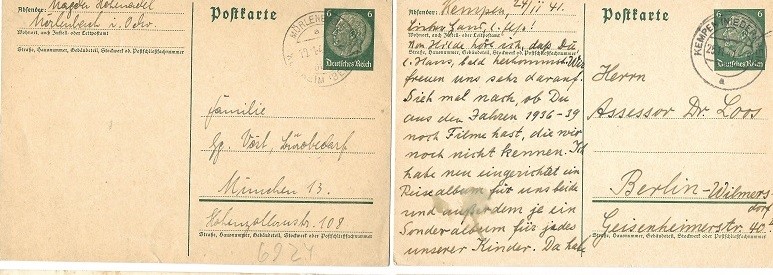 Absender: Magda
Mörlenbach i. Odw.
Wohnort, auch Zustell- oder Leitpostamt
Straße, Hausnummer, Gebäudeteil, Stockwerk od. Postschließfachnummer
Postkarte
6 6
Deutsches Reich
MÖRLENB
Familie
Gg. Vöst, Bürobedarf
München 13.
Hohenzollernstr. 108
Straße, Hausnummer, Gebäudeteil, Stockwerk oder Postschließfachnummer
Absender: Kempen, 24/11 41.
Lieber Hans,
Wohnort, auch Zustell- oder Leitpostamt
Von Hilde hör ich, daß Du
Straße, Hausnummer, Gebäudeteil, Stockwerk od. Postschließfachnummer
l. Hans, bald herkommst. Wir
freuen uns sehr darauf.
Sieh mal nach, ob Du
aus den Jahren 1936-39
noch Filme hast, die wir
noch nicht kennen. Ich
habe neu eingerichtet ein
Reisealbum für uns beide
und außerdem je ein
Sonderalbum für jedes
unserer Kinder. Da habe
Postkarte
6 6
Deutsches Reich
KEMPEN
a
Herrn
Assessor Dr. Loos
Berlin-Wilmers
dorf
Geisenheimerstr. 40
Straße, Hausnummer, Gebäudeteil, Stockwerk oder Postschließfachnummer